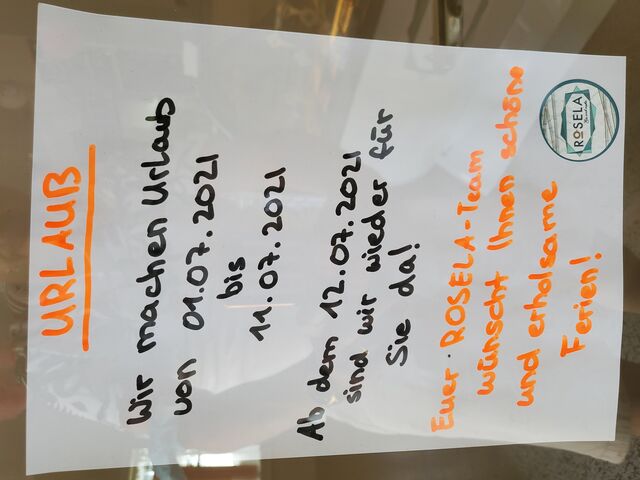 URLAUß
Wir machen Urlaub
von 01.07.2021
bis
11.07.2021
Ab dem 12.07.2021
sind wir wieder für
Sie da!
Euer ROSELA-Team
wünscht Ihnen schöne
und erholsame
Ferien!
ROSELA